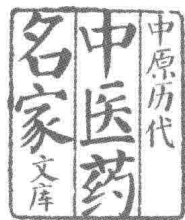 中原历代
中医药
名家文库